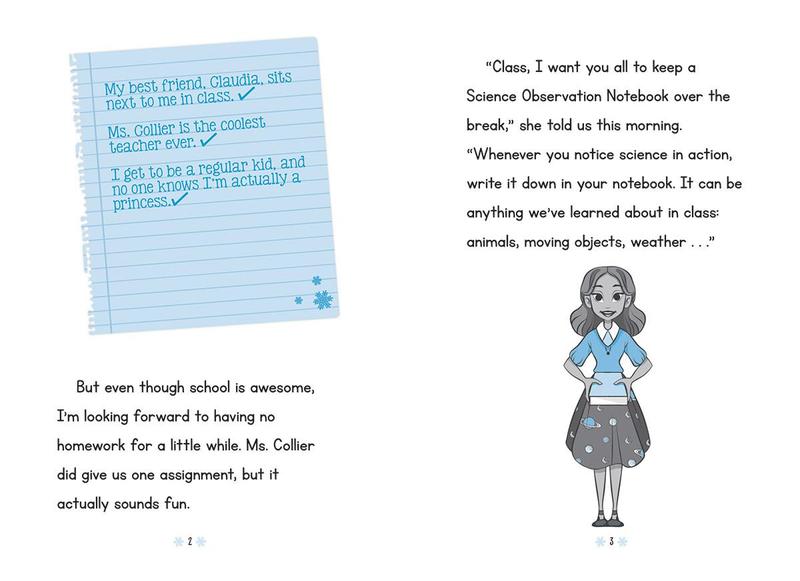 My best friend, Claudia, sits
next to me in class. ✓
Ms. Collier is the coolest
teacher ever. ✓
I get to be a regular kid, and
no one knows I'm actually a
princess.✓
But even though school is awesome,
I'm looking forward to having no
homework for a little while. Ms. Collier
did give us one assignment, but it
actually sounds fun.
2
“Class, I want you all to keep a
Science Observation Notebook over the
break,” she told us this morning.
“Whenever you notice science in action,
write it down in your notebook. It can be
anything we've learned about in class:
animals, moving objects, weather . . .”
3